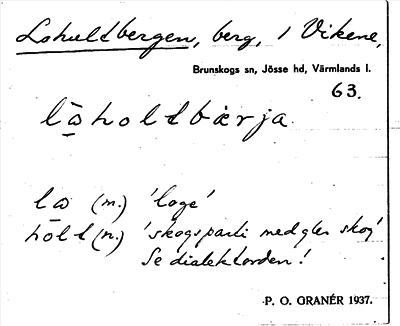 Lohultbergen, berg, i Vikene,
Brunskogs sn, Jösse hd, Värmlands l.
63.
låholtbærja
lå (m.) 'loge'
hòlt (n.) 'skogsparti med gles skog'
Se dialektorden!
P. O. GRANÉR 1937.